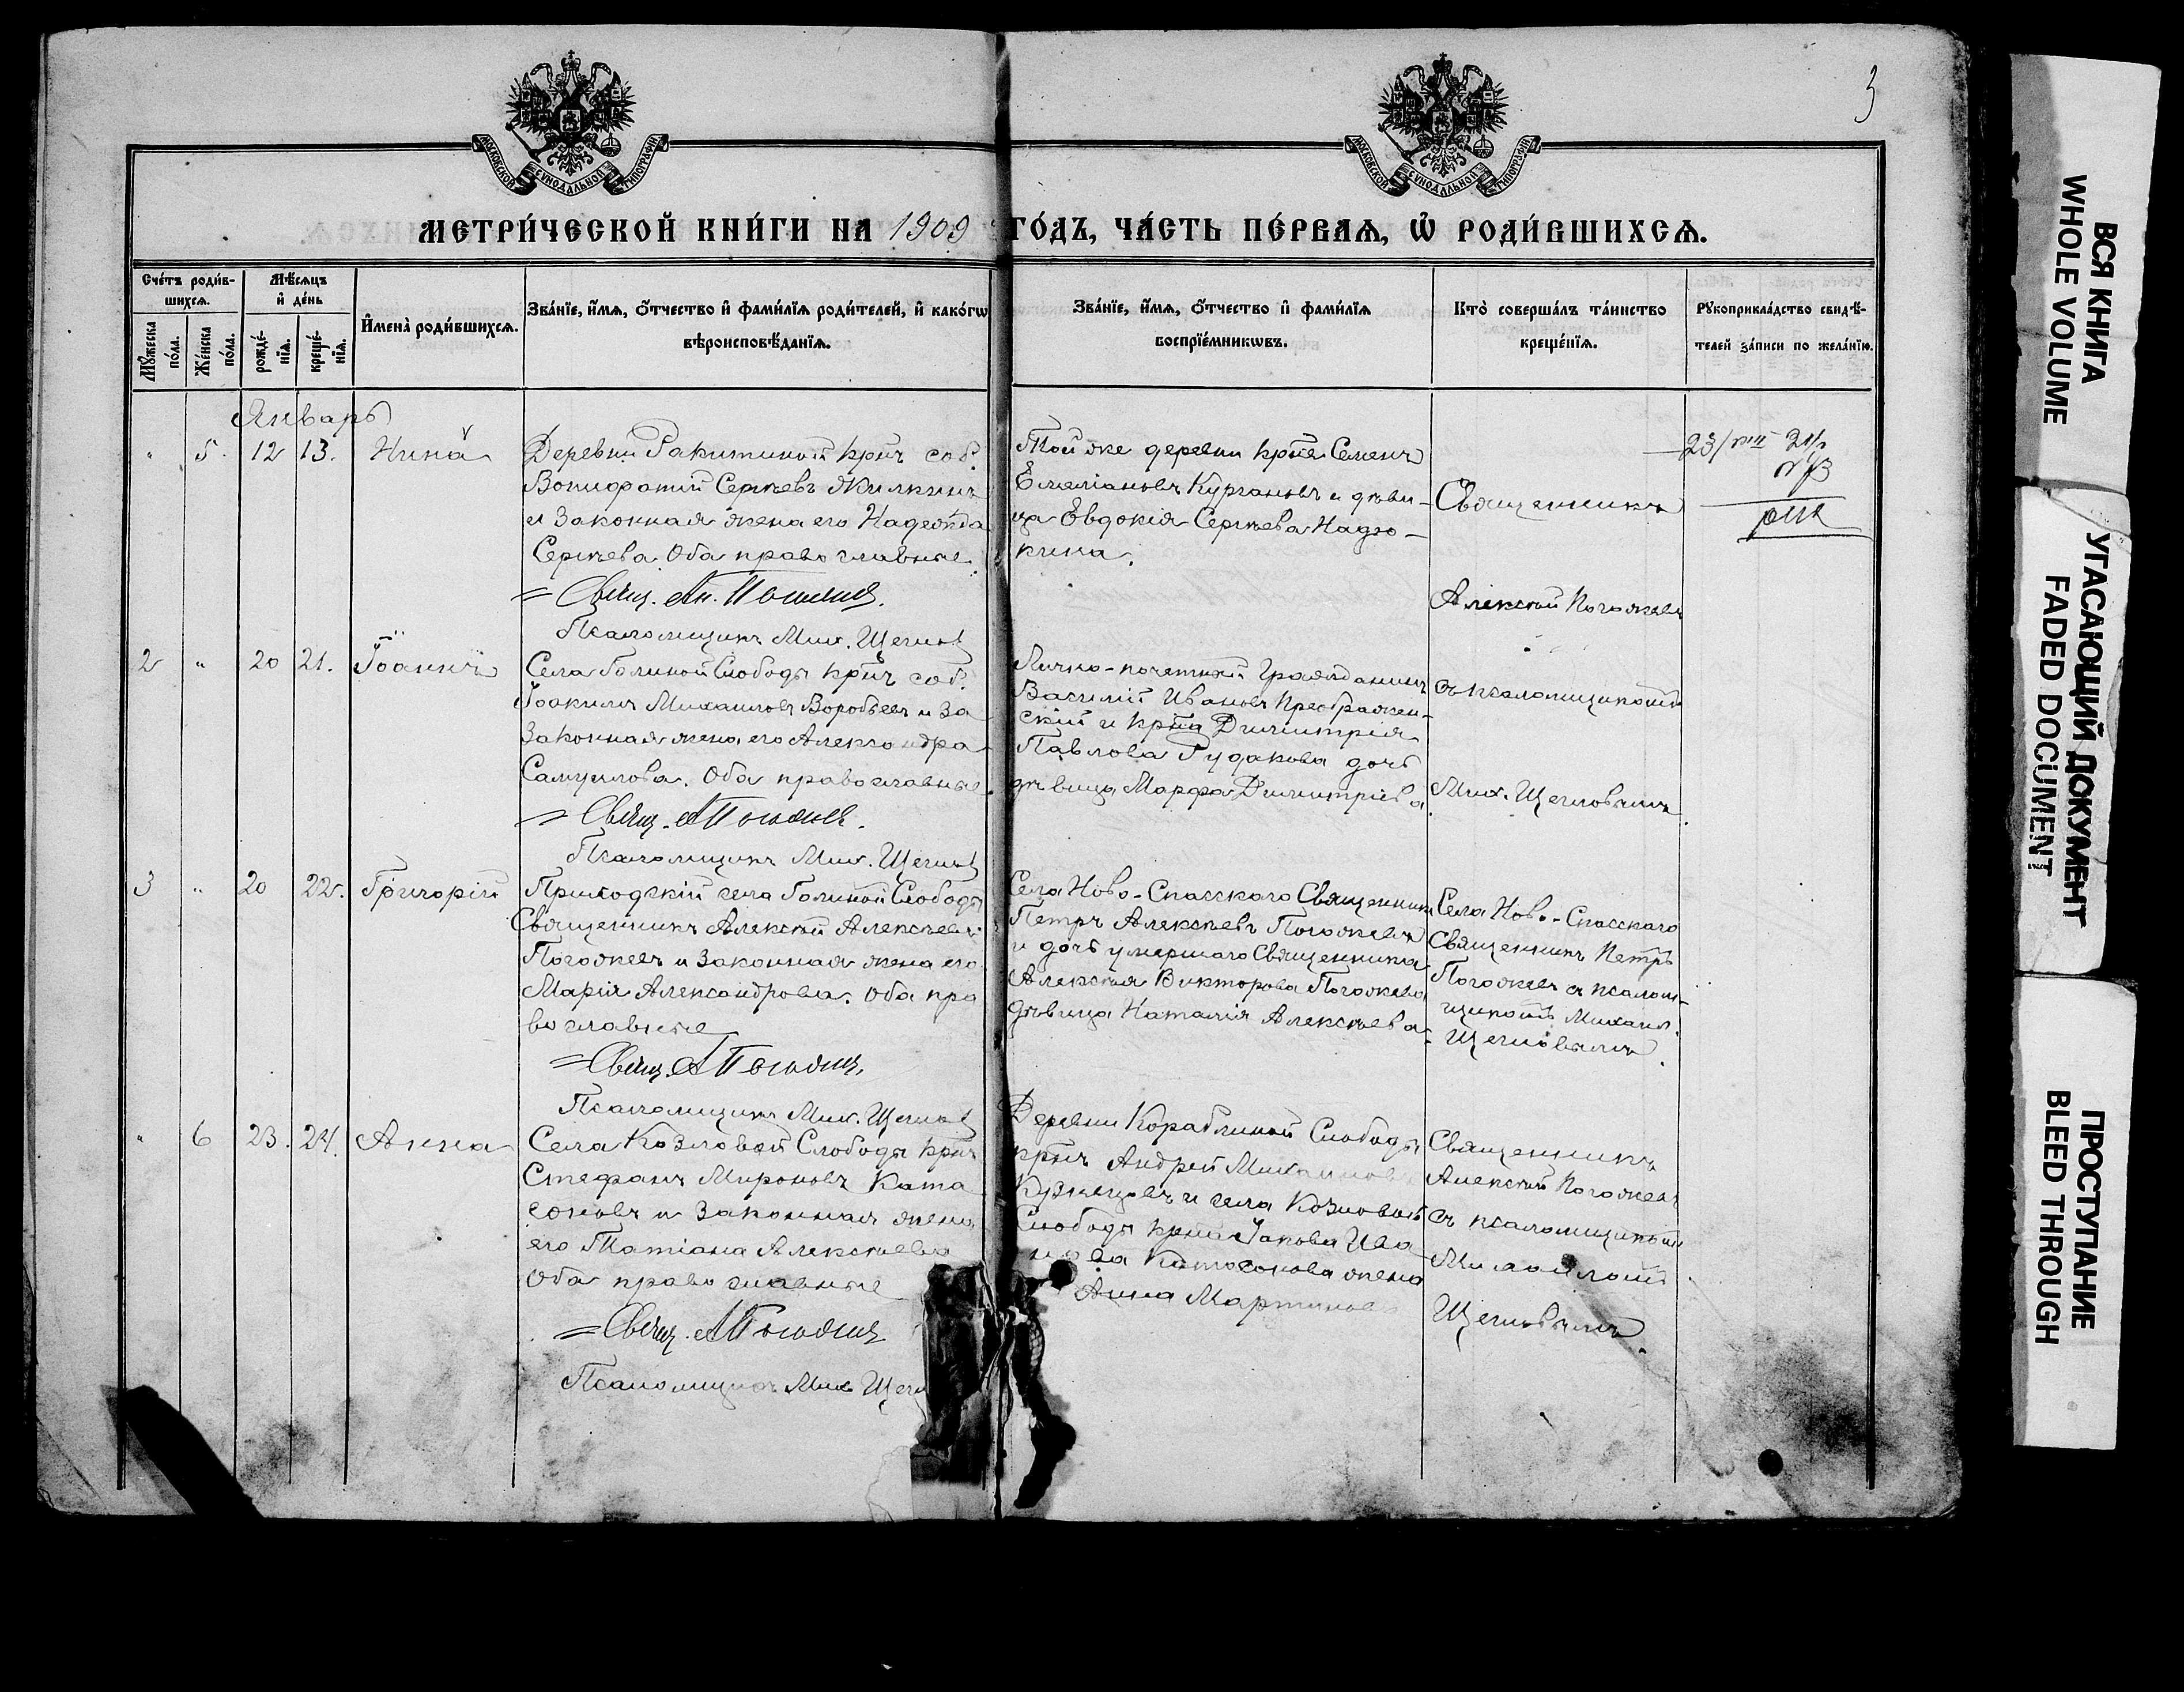 3
МОСКОВСКОЙ СѴНОДАЛЬНОЙ ТИПОГРАФІИ
МОСКОВСКОЙ СѴНОДАЛЬНОЙ ТИПОГРАФІИ
МЕТРИ́ЧЕСКОЙ КНИ́ГИ НА 1909 ГО́ДЪ, ЧА́СТЬ ПЕ́РВАѦ, Ѡ҆ РОДИ́ВШИХСѦ.
Сче́тъ роди́в-
шихсѧ.
Мꙋ́жеска по́ла.
Же́нска по́ла.
Мѣ́сѧцъ
и҆ де́нь
рожде́-
нїѧ.
креще́-
нїѧ.
И҆мена̀ роди́вшихсѧ.
Зва́нїе, и҆́мѧ, ѻ҆́тчество и҆ фами́лїѧ роди́телей, и҆ како́гѡ
вѣроисповѣ́данїѧ.
Зва́нїе, и҆́мѧ, ѻ҆́тчество и҆ фами́лїѧ
воспрїе́мникѡвъ.
Кто̀ соверша́лъ та́инство
креще́нїѧ.
Рꙋкоприкла́дство свидѣ́-
телей за́писи по жела́нїю.
Январь
" 5. 12 13. Нина
Деревни Ракитиной крнъ соб.
Вонифатій Сергѣевъ Жилкинъ
и законная жена его Надежда
Сергѣева. Оба православные.
= Свящ. Ал. Погожев.
Псаломщикъ Мих. Щеглов
Той же деревни крнъ Семенъ
Емеліановъ Кургановъ и дѣви-
ца Евдокія Сергѣева Надю-
кина.
Священникъ
Алексѣй Погожевъ
съ псаломщикомъ
Мих. Щегловымъ.
23/VIII
2 " 20 21. Іоаннъ
Села Голиной Слободы крнъ соб.
Іоакимъ Михаиловъ Воробьевъ и за
законная жена его Александра
Самуилова. Оба православные.
= Свящ. А Погожев.
Псаломщикъ Мих. Щеглов
Лично-почетный Гражданинъ
Василій Ивановъ Преображен-
скій и крна Димитрія
Павлова Рудакова дочь
дѣвица Марфа Димитріева
3 " 20 22. Григорій
Приходскій села Голиной Слободы
Священникъ Алексѣй Алексѣевъ
Погожевъ и законная жена его
Марія Александрова. Оба пра
вославные
= Свящ. А Погожев.
Псаломщикъ Мих. Щеглов
Села Ново-Спасскаго Священникъ
Петръ Алексѣевъ Погожевъ
и дочь умершаго Священника
Алексѣя Викторова Погожева
дѣвица Наталія Алексѣева.
Села Ново-Спасскаго
Священникъ Петръ
Погожевъ съ псалом-
щикомъ Михаил.
Щегловымъ.
" 6 23. 24. Анна
Села Козловой Слободы крнъ
Стефанъ Мироновъ Ката
соновъ и законная жена
его Татіана Алексѣева
Оба православные
= Свящ. А Погожев
Псаломщикъ Мих Щегл
Деревни Кораблиной Слободы
крнъ Андрей Михаиловъ
Кузнецовъ и села Козловой
Слободы крна Іакова Ива
нова Катасонова жена
Анна Мартинова
Священникъ
Алексѣй Погожевъ
съ псаломщикомъ
Михаиломъ
Щегловымъ.
ВСЯ КНИГА
WHOLE VOLUME
УГАСАЮЩИЙ ДОКУМЕНТ
FADED DOCUMENT
ПРОСТУПАНИЕ
BLEED THROUGH